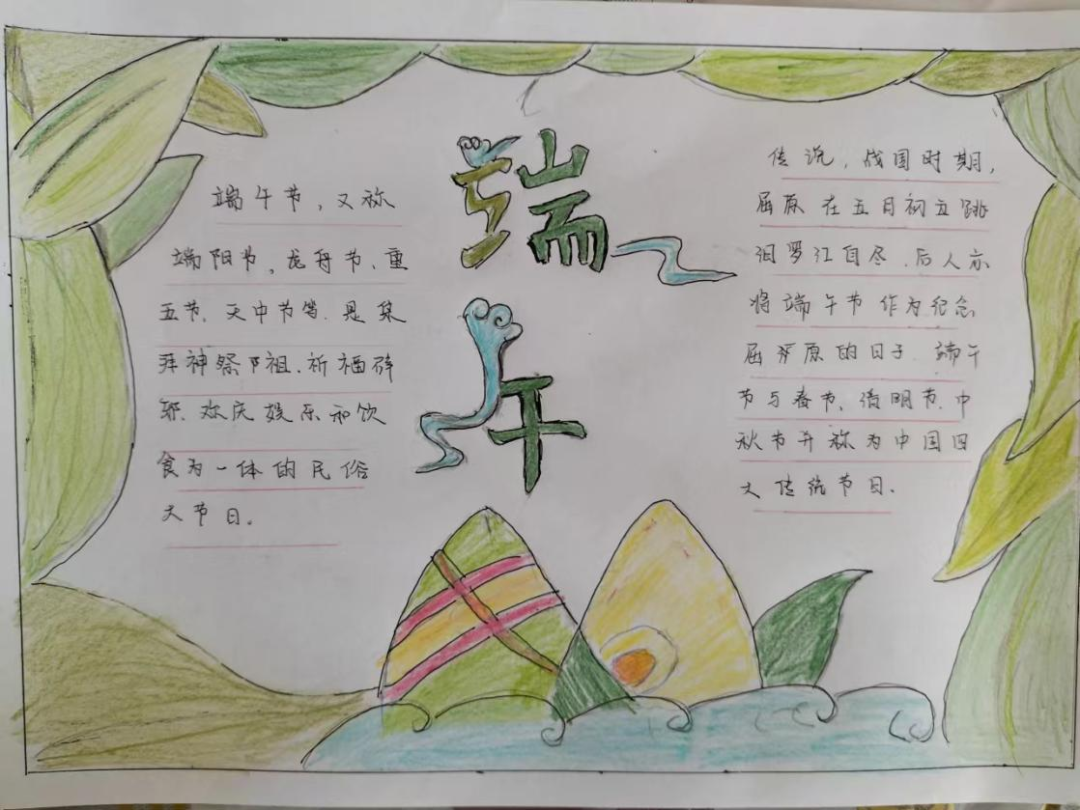 端午
端午节，又称
端阳节、龙舟节、重
五节、天中节等，是集
拜神祭祖、祈福辟
邪、欢庆娱乐和饮
食为一体的民俗
大节日。
传说，战国时期，
屈原在五月初五跳
汨罗江自尽，后人亦
将端午节作为纪念
屈原的日子，端午
节与春节、清明节、中
秋节并称为中国四
大传统节日。